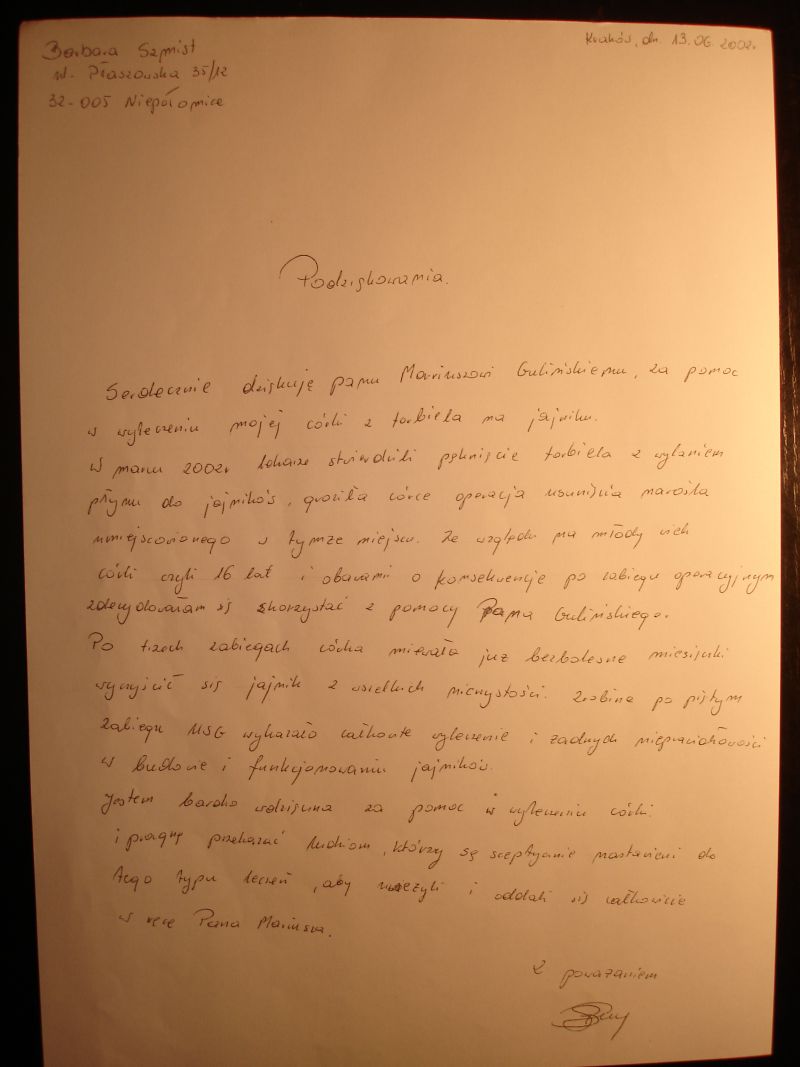 Barbara Szmist
ul. Płaszowska 35/12
32-005 Niepołomice
Kraków, dn. 13.06.2002r.
Podziękowania.
Serdecznie dziękuję panu Mariuszowi Gulińskiemu, za pomoc
w wyleczeniu mojej córki z torbiela na jajniku.
W marcu 2002r lekarze stwierdzili pęknięcie torbiela z wylaniem
płynu do jajników, groziła córce operacja usunięcia narośla
umiejscowionego w tymże miejscu. Ze względu na młody wiek
córki czyli 16 lat i obawami o konsekwencje po zabiegu operacyjnym
zdecydowałam się skorzystać z pomocy Pana Gulińskiego.
Po trzech zabiegach córka miewała już bezbolesne miesiączki
wyczyścić się jajnik z wszelkich nieczystości. Zrobine po piątym
zabiegu USG wykazało całkowite wyleczenie i żadnych nieprawidłowości
w budowie i funkcjonowaniu jajników.
Jestem bardzo wdzięczna za pomoc w wyleczeniu córki.
i pragnę przekazać ludziom, którzy są sceptycznie nastawieni do
tego typu leczeń, aby i oddali się całkowicie
w ręce Pana Mariusza.
Z poważaniem